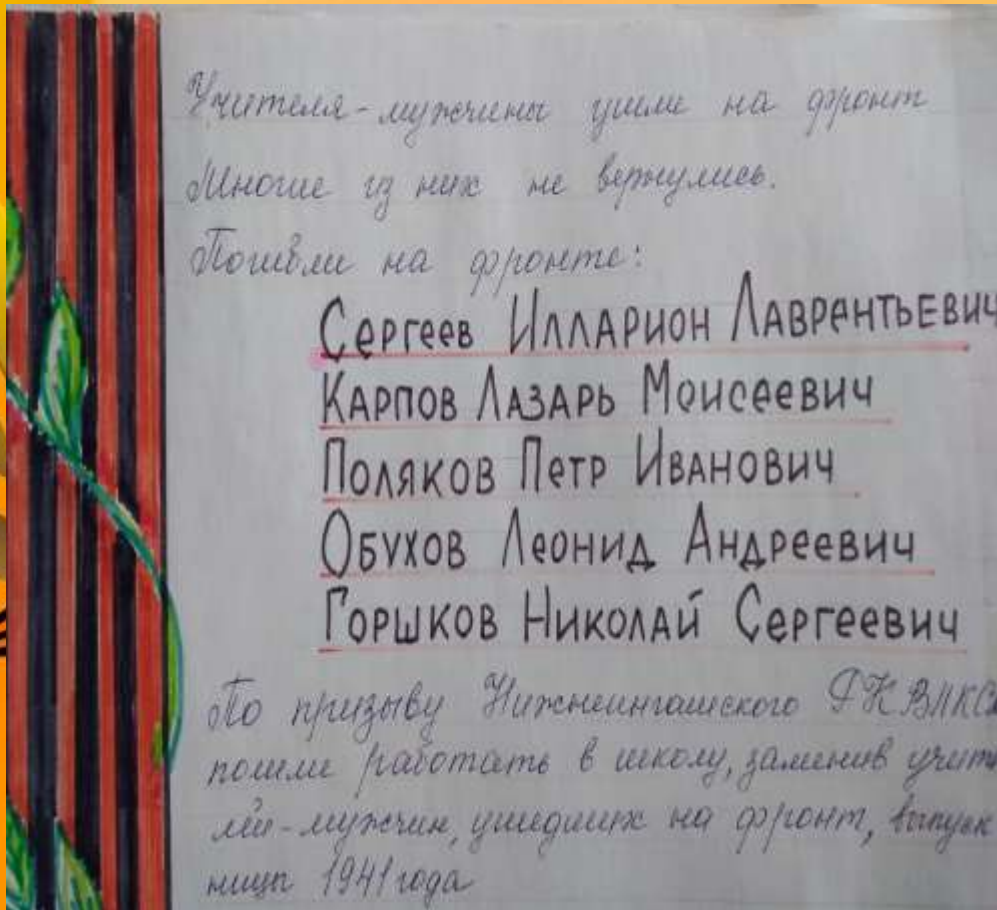 Учителя-мужчины ушли на фронт
Многие из них не вернулись.
Погибли на фронте:
Сергеев Илларион Лаврентьевич
Карпов Лазарь Моисеевич
Поляков Петр Иванович
Обухов Леонид Андреевич
Горшков Николай Сергеевич
По призыву Нижнеингашского РК ВЛКС
пошли работать в школу, заменив учит
лей-мужчин, ушедших на фронт, выпуск
ницы 1941 года